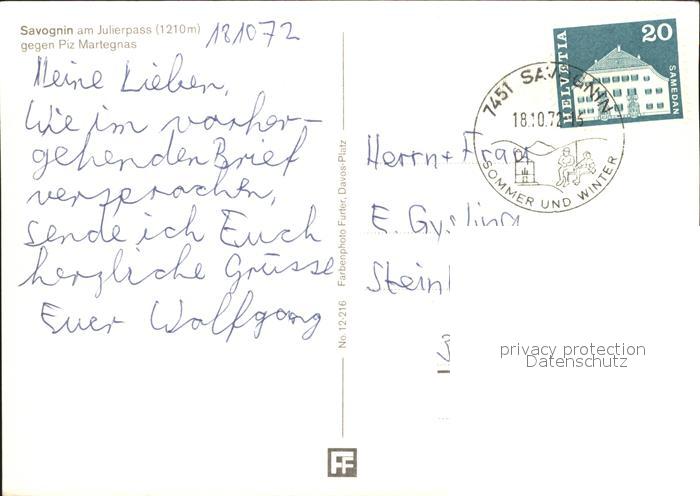 Savognin am Julierpass (1210m)
gegen Piz Martegnas
181072
Meine Lieben,
Wie im vorher-
gehenden Brief
versprochen,
sende ich Euch
herzliche Grüsse
Euer Wolfgang
No. 12-216 Farbenphoto Furter, Davos-Platz
FF
HELVETIA
20
SAMEDAN
7451 SAVOGNIN
18.10.72
SOMMER UND WINTER
Herrn + Frau
E. Gysling
Stein
privacy protection
Datenschutz